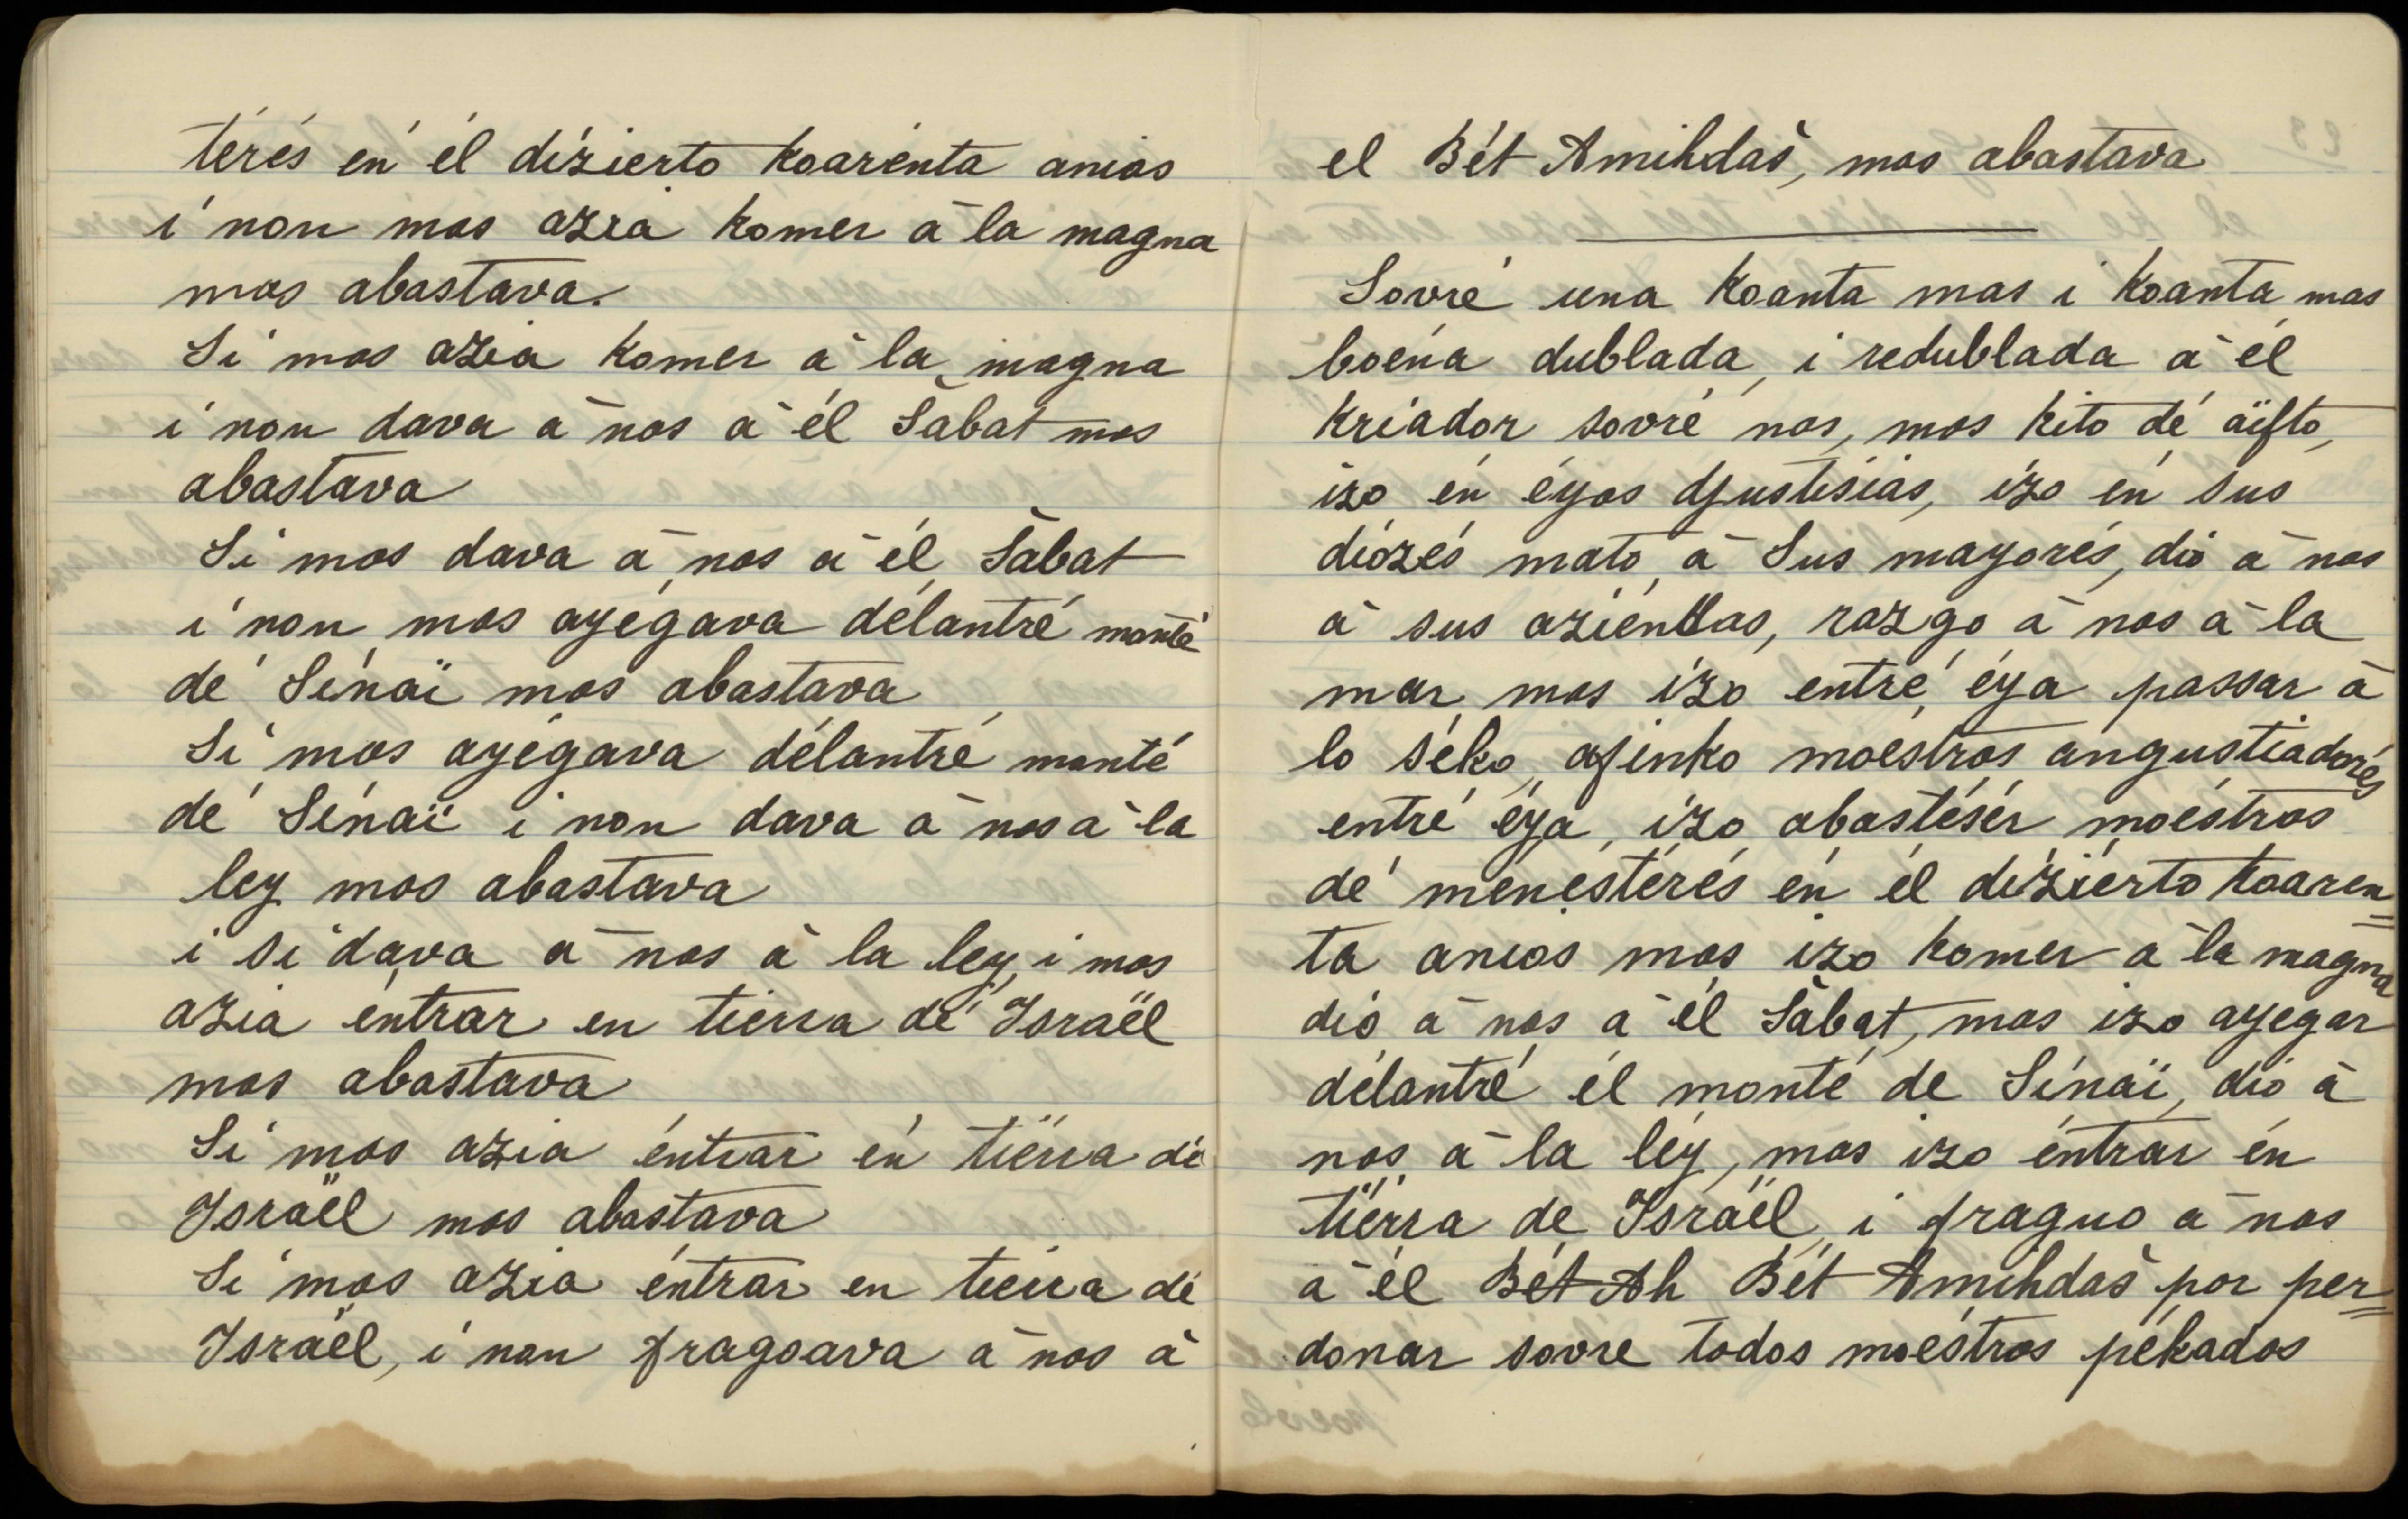 térés én él dizierto koarénta anios
i non mos azia komer a la magna
mos abastava.
Si mos azia komer a la magna
i non dava a nos a él Sabat mos
abastava
Si mos dava a nos a él Sabat
i non mos ayégava délantré monté
dé Sinaï mos abastava
Si mos ayégava délantré monté
dé Sinaï i non dava a nos a la
ley mos abastava
i si dava a nos a la ley, i mos
azia éntrar en tierra dé Israël
mos abastava
Si mos azia éntrar én tiérra dé
Israël mos abastava
Si mos azia éntrar en tierra dé
Israël, i non fragoava a nos a
el Bét Amihdaš, mos abastava
Sovré una koanta mas i koanta mas
boéna dublada, i redublada a él
kriador sovré nos, mos kito dé aïfto,
izo én éyos djustisias, izo én sus
diozés mato, a sus mayorés, dio a nos
a sus aziendas, razgo a nos a la
mar mos izo entré éya passar a
lo séko, afinko moéstros angustiadorés
entré éya, izo abastésér moéstros
dé ménéstérés én él diziérto koaren=
ta anios mos izo komer a la magna
dio a nos a él Sabat, mos izo ayegar
délantré él monté de Sinaï, dio a
nos a la léy, mos izo éntrar én
tiérra de Israël, i fraguo a nos
a él Bét Ah Bét Amihdaš por per=
donar sovre todos moéstros pékados